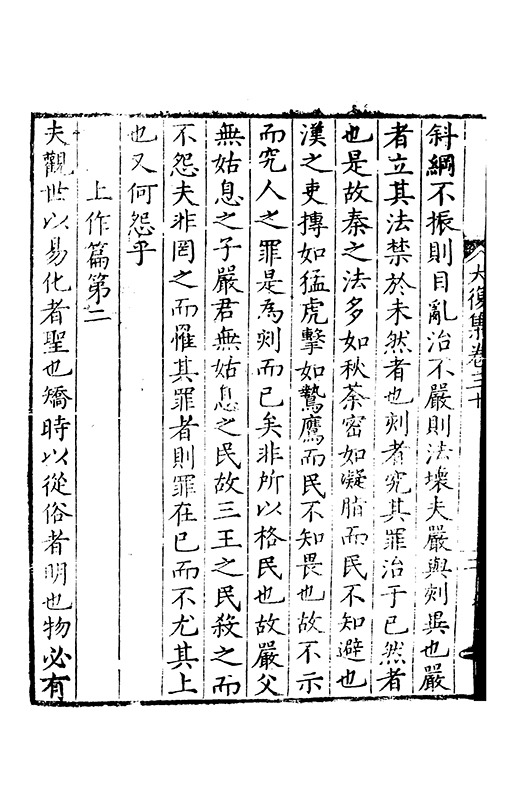 斜綱不振則目亂治不嚴則法壞夫嚴與刻異也嚴
者立其法禁於未然者也刻者究其罪治于已然者
也是故秦之法多如秋荼密如凝脂而民不知避也
漢之吏摶如猛虎擊如鷙鷹而民不知畏也故不示
而究人之罪是為刻而已矣非所以格民也故嚴父
無姑息之子嚴君無姑息之民故三王之民殺之而
不怨夫非罔之而罹其罪者則罪在已而不尤其上
也又何怨乎
上作篇第二
夫觀世以易化者聖也矯時以從俗者明也物必有
大復集卷三十